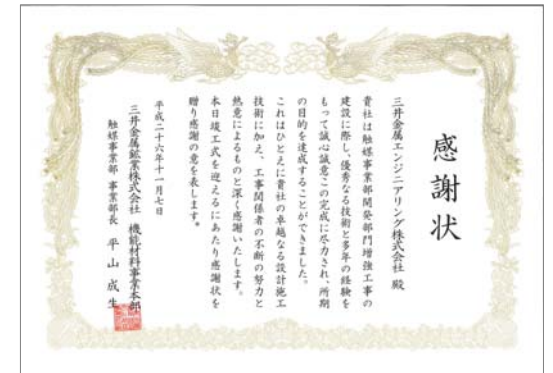 感謝状
三井金属エンジニアリング株式会社 殿
貴社は触媒事業部開発部門増強工事の
建設に際し、優秀なる技術と多年の経験を
もって誠心誠意この完成に尽力され、所期
の目的を達成することができました。
これはひとえに貴社の卓越なる設計施工
技術に加え、工事関係者の不断の努力と
熱意によるものと深く感謝いたします。
本日竣工式を迎えるにあたり感謝状を
贈り感謝の意を表します。
平成二十六年十一月七日
三井金属鉱業株式会社 機能材料事業本部
触媒事業部 事業部長 平山成生